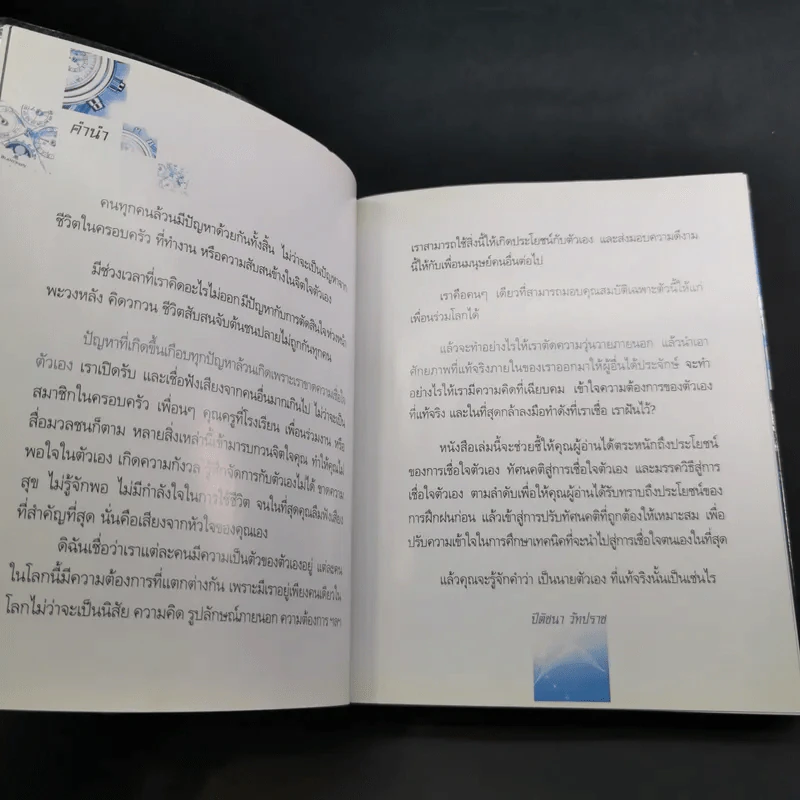 คำนำ
คนทุกคนล้วนมีปัญหาด้วยกันทั้งสิ้น ไม่ว่าจะเป็นปัญหาจาก
ชีวิตในครอบครัว ที่ทำงาน หรือความสับสนข้างในจิตใจตัวเอง
มีช่วงเวลาที่เราคิดอะไรไม่ออก มีปัญหากับการตัดสินใจ ห่วงหน้า
พะวงหลัง คิดวกวน ชีวิตสับสนจับต้นชนปลายไม่ถูกกันทุกคน
ปัญหาที่เกิดขึ้นเกือบทุกปัญหาล้วนเกิดเพราะเราขาดความเชื่อใจ
ตัวเอง เราเปิดรับ และเชื่อฟังเสียงจากคนอื่นมากเกินไป ไม่ว่าจะเป็น
สมาชิกในครอบครัว เพื่อนๆ คุณครูที่โรงเรียน เพื่อนร่วมงาน หรือ
สื่อมวลชนก็ตาม หลายสิ่งเหล่านี้เข้ามารบกวนจิตใจคุณ ทำให้คุณไม่
พอใจในตัวเอง เกิดความกังวล รู้สึกจัดการกับตัวเองไม่ได้ ขาดความ
สุข ไม่รู้จักพอ ไม่มีกำลังใจในการใช้ชีวิต จนในที่สุดคุณลืมฟังเสียง
ที่สำคัญที่สุด นั่นคือเสียงจากหัวใจของคุณเอง
ดิฉันเชื่อว่าเราแต่ละคนมีความเป็นตัวของตัวเองอยู่ แต่ละคน
ในโลกนี้มีความต้องการที่แตกต่างกัน เพราะมีเราอยู่เพียงคนเดียวใน
โลกไม่ว่าจะเป็นนิสัย ความคิด รูปลักษณ์ภายนอก ความต้องการ ฯลฯ
เราสามารถใช้สิ่งนี้ให้เกิดประโยชน์กับตัวเอง และส่งมอบความดีงาม
นี้ให้กับเพื่อนมนุษย์คนอื่นต่อไป
เราคือคนๆ เดียวที่สามารถมอบคุณสมบัติเฉพาะตัวนี้ให้แก่
เพื่อนร่วมโลกได้
แล้วจะทำอย่างไรให้เราตัดความวุ่นวายภายนอก แล้วนำเอา
ศักยภาพที่แท้จริงภายในของเราออกมาให้ผู้อื่นได้ประจักษ์ จะทำ
อย่างไรให้เรามีความคิดที่เฉียบคม เข้าใจความต้องการของตัวเอง
ที่แท้จริง และในที่สุดกล้าลงมือทำดังที่เราเชื่อ เราฝันไว้?
หนังสือเล่มนี้จะช่วยชี้ให้คุณผู้อ่านได้ตระหนักถึงประโยชน์
ของการเชื่อใจตัวเอง ทัศนคติสู่การเชื่อใจตัวเอง และมรรควิธีสู่การ
เชื่อใจตัวเอง ตามลำดับเพื่อให้คุณผู้อ่านได้รับทราบถึงประโยชน์ของ
การฝึกฝนก่อน แล้วเข้าสู่การปรับทัศนคติที่ถูกต้องให้เหมาะสม เพื่อ
ปรับความเข้าใจในการศึกษาเทคนิคที่จะนำไปสู่การเชื่อใจตนเองในที่สุด
แล้วคุณจะรู้จักคำว่า เป็นนายตัวเอง ที่แท้จริงนั้นเป็นเช่นไร
ปิติชนา วัทปราช